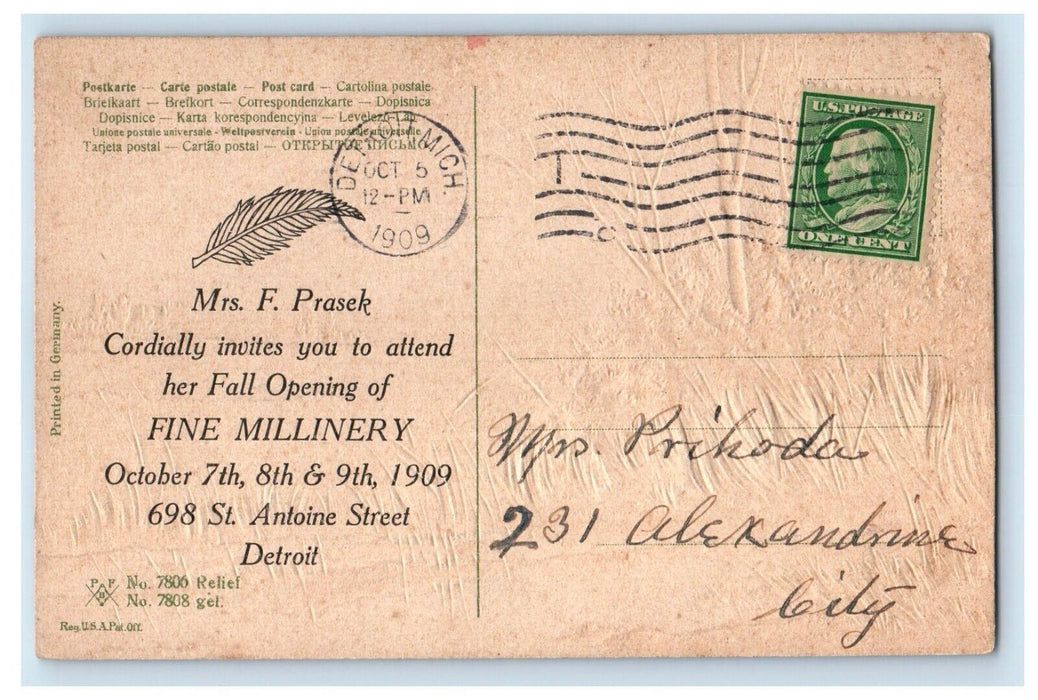 Postkarte — Carte postale — Post card — Cartolina postale
Briefkaart — Brefkort — Correspondenzkarte — Dopisnica
Dopisnice — Karta korespondencyjna — Levelező-Lap
Unione postale universale - Weltpostverein - Union postale universelle
Tarjeta postal — Cartão postal — ОТКРЫТОЕ ПИСЬМО
DETROIT, MICH.
OCT 5
12-PM
1909
U.S. POSTAGE
ONE CENT
Mrs. F. Prasek
Cordially invites you to attend
her Fall Opening of
FINE MILLINERY
October 7th, 8th & 9th, 1909
698 St. Antoine Street
Detroit
Printed in Germany.
P F B
No. 7806 Relief
No. 7808 gel.
Reg. U.S.A. Pat. Off.
Mrs. Prihoda
231 Alexandrine
City